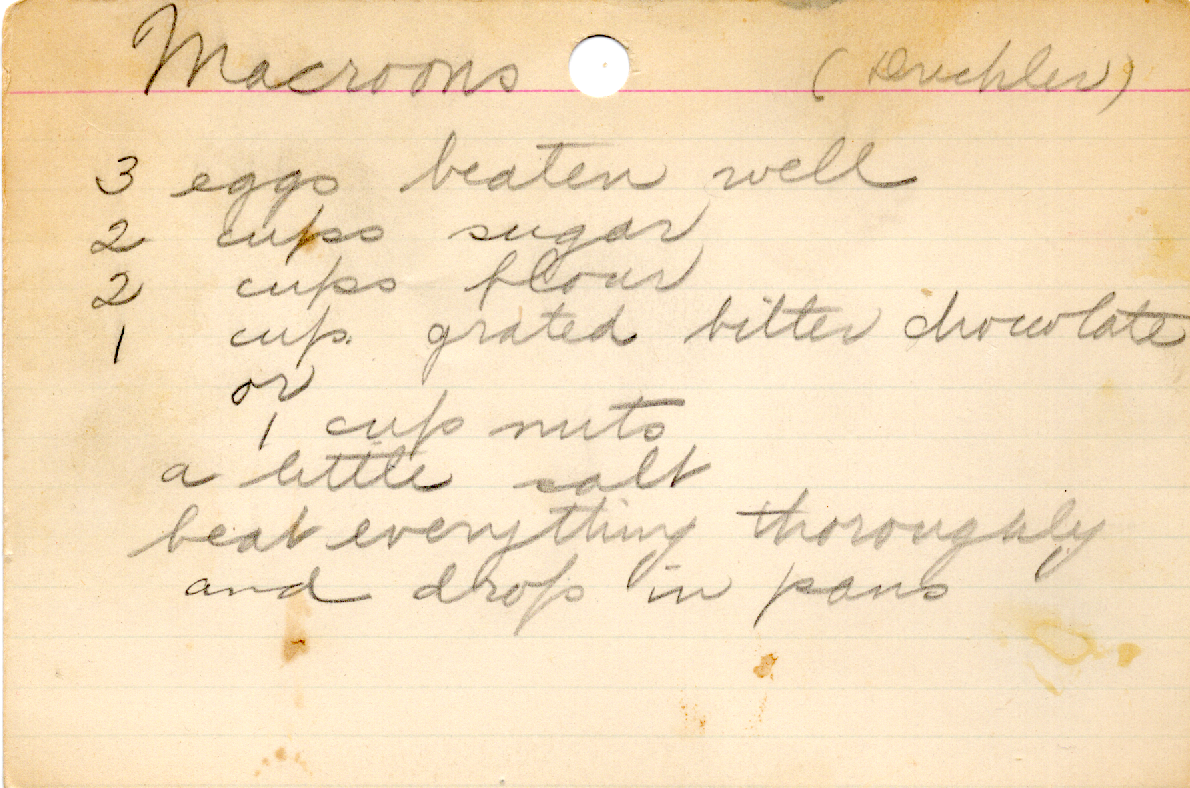 Macroons
3 eggs beaten well
2 cups sugar
2 cups flour
1 cup. grated bitter chocolate
or
1 cup nuts
a little salt
beat everything thoroughly
and drop in pans